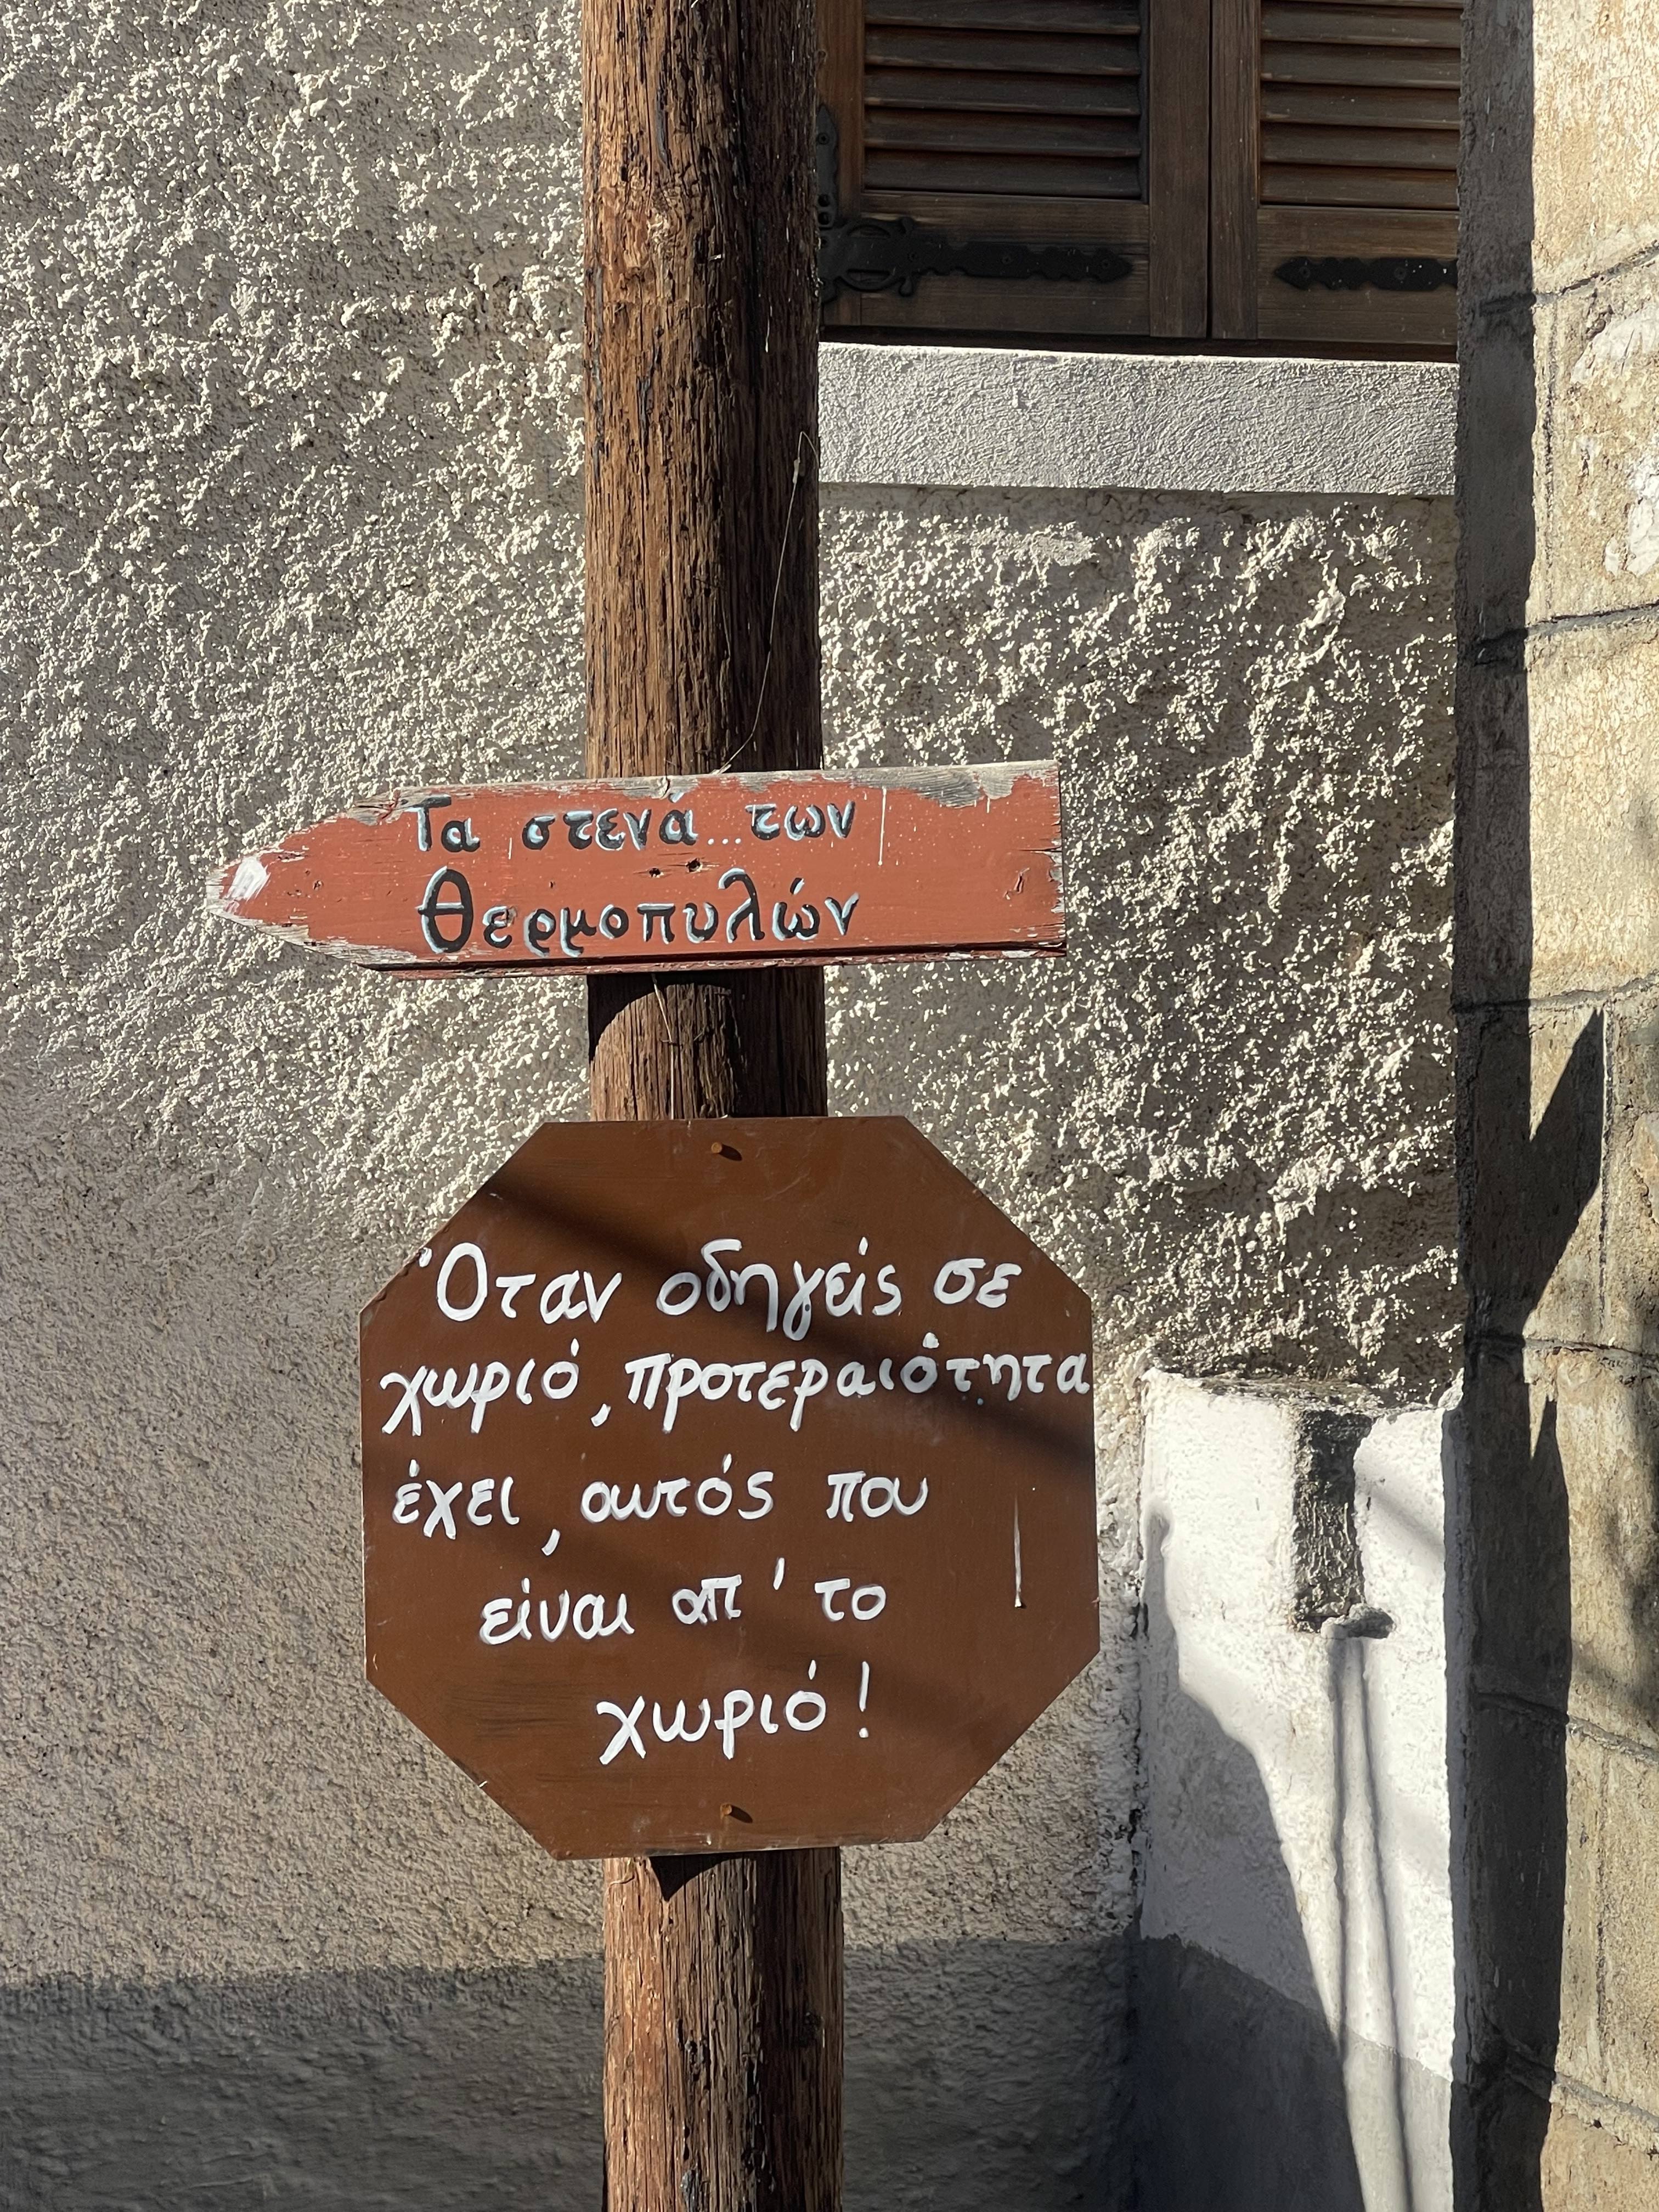 Τα στενά... των
Θερμοπυλών
Όταν οδηγείς σε
χωριό, προτεραιότητα
έχει, αυτός που
είναι απ' το
χωριό!